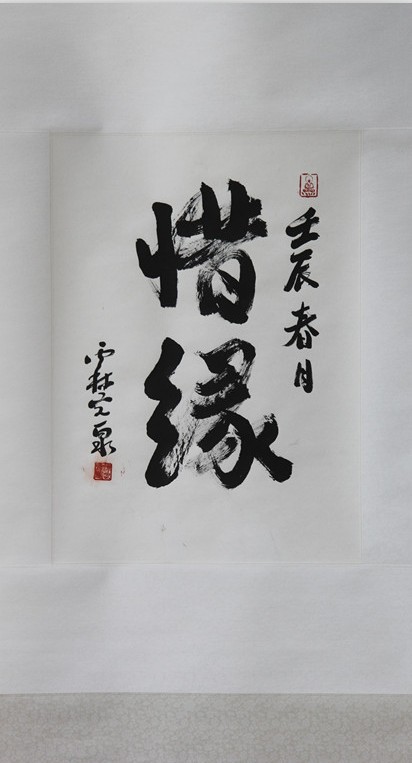 壬辰春月
惜缘
雲林光泉